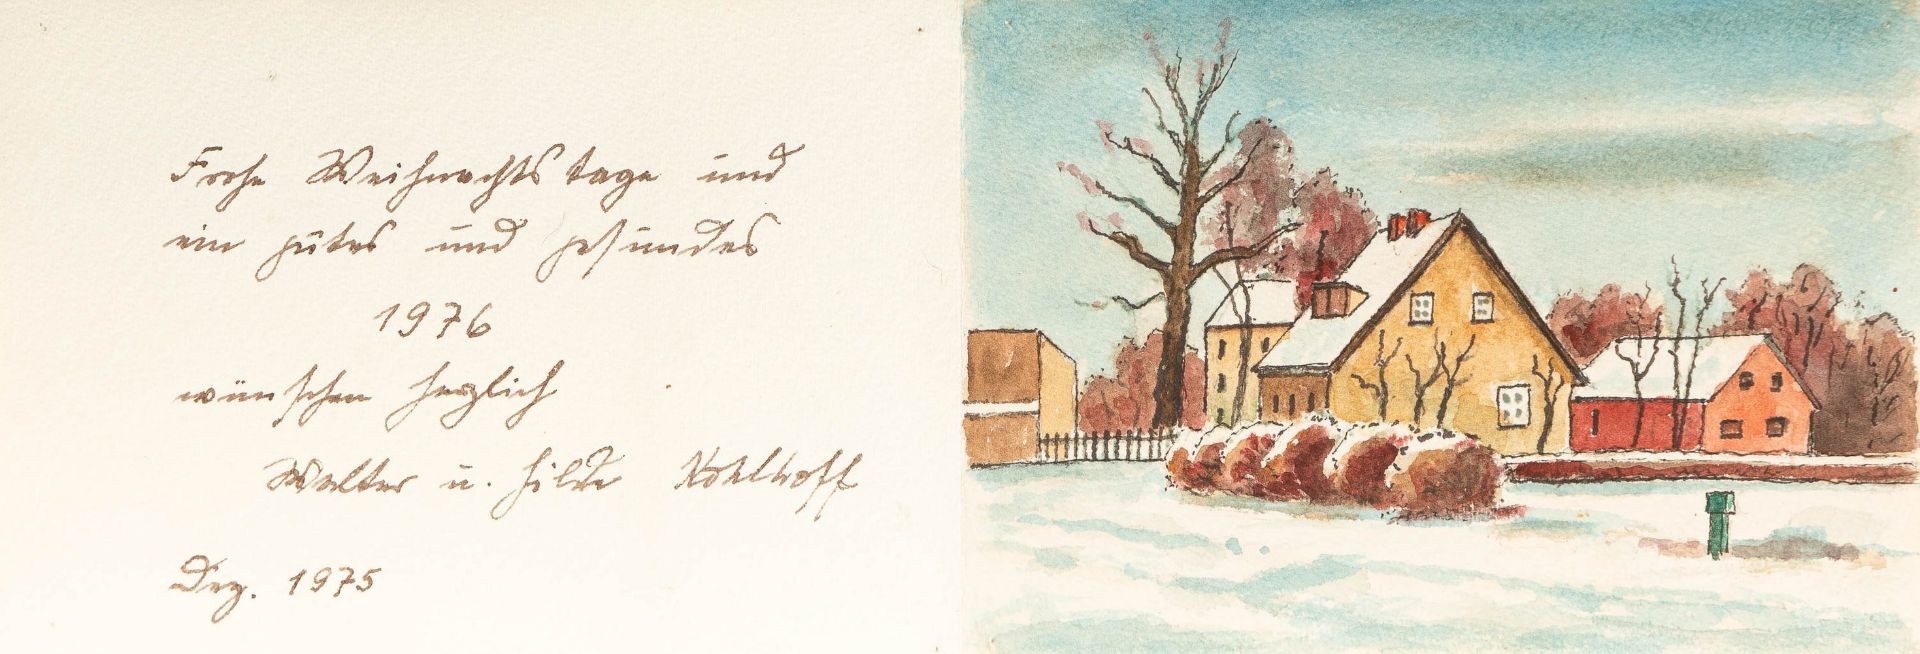 Frohe Weihnachtstage und
ein gutes und gesundes
1976
wünschen herzlich
Walter u. Hilde Kohlhoff
Dez. 1975